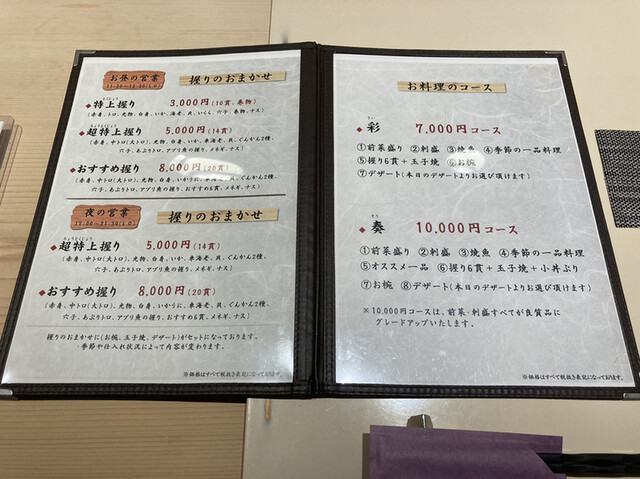 お昼の営業
11:30～13:30(L.O)
握りのおまかせ
とくじょう
◆特上握り 3,000円(10貫、巻物)
(赤身、トロ、光物、白身、いか、海老、貝、いくら、穴子、巻物、ナス)
ちょうとくじょう
◆超特上握り 5,000円(14貫)
(赤身、中トロ(大トロ)、光物、白身、いか、車海老、貝、ぐんかん2種、
穴子、あぶりトロ、アブリ魚の握り、メネギ、ナス)
◆おすすめ握り 8,000円(20貫)
(赤身、中トロ(大トロ)、光物、白身、いかうに、車海老、貝、ぐんかん2種、
穴子、あぶりトロ、アブリ魚の握り、おすすめ6貫、メネギ、ナス)
夜の営業
17:00～21:30(L.O)
握りのおまかせ
ちょうとくじょう
◆超特上握り 5,000円(14貫)
(赤身、中トロ(大トロ)、光物、白身、いか、車海老、貝、ぐんかん2種、
穴子、あぶりトロ、アブリ魚の握り、メネギ、ナス)
◆おすすめ握り 8,000円(20貫)
(赤身、中トロ(大トロ)、光物、白身、いかうに、車海老、貝、ぐんかん2種、
穴子、あぶりトロ、アブリ魚の握り、おすすめ6貫、メネギ、ナス)
握りのおまかせに(お椀、玉子焼、デザート)がセットになっております。
季節や仕入れ状況によって内容が変わります。
※価格はすべて税抜き表記になっております。
お料理のコース
さい
◆彩 7,000円コース
①前菜盛り ②刺盛 ③焼魚 ④季節の一品料理
⑤握り6貫+玉子焼 ⑥お椀
⑦デザート(本日のデザートよりお選び頂けます)
そう
◆奏 10,000円コース
①前菜盛り ②刺盛 ③焼魚 ④季節の一品料理
⑤オススメ一品 ⑥握り6貫+玉子焼+小丼ぶり
⑦お椀 ⑧デザート(本日のデザートよりお選び頂けます)
※10,000円コースは、前菜・刺盛すべてが良質品に
グレードアップいたします。
※価格はすべて税抜き表記になっております。